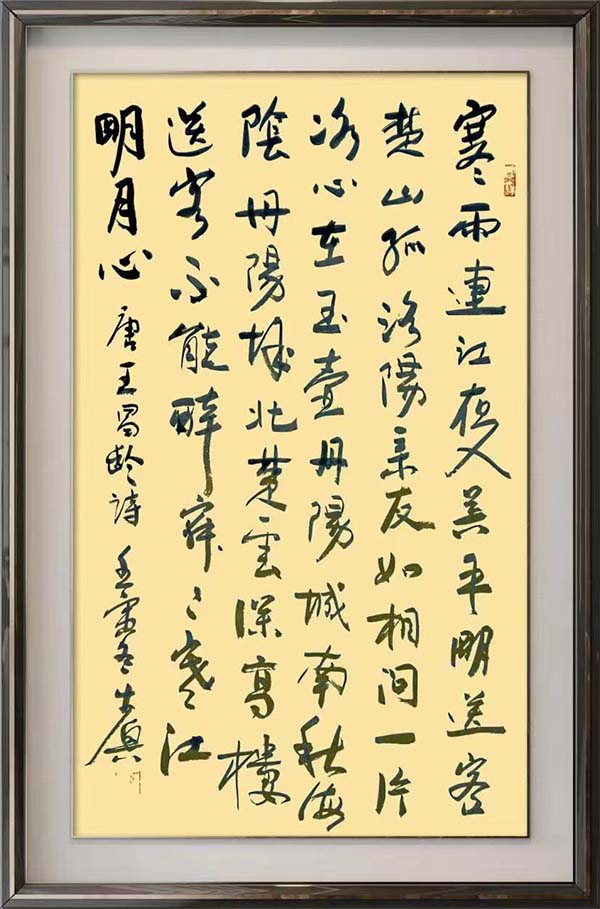 寒雨連江夜入吴平明送客
楚山孤洛陽亲友如相问一片
冰心在玉壺丹陽城南秋海
陰丹陽城北楚雲深高樓
送客不能醉寂々寒江
明月心 唐王昌齡詩 冬